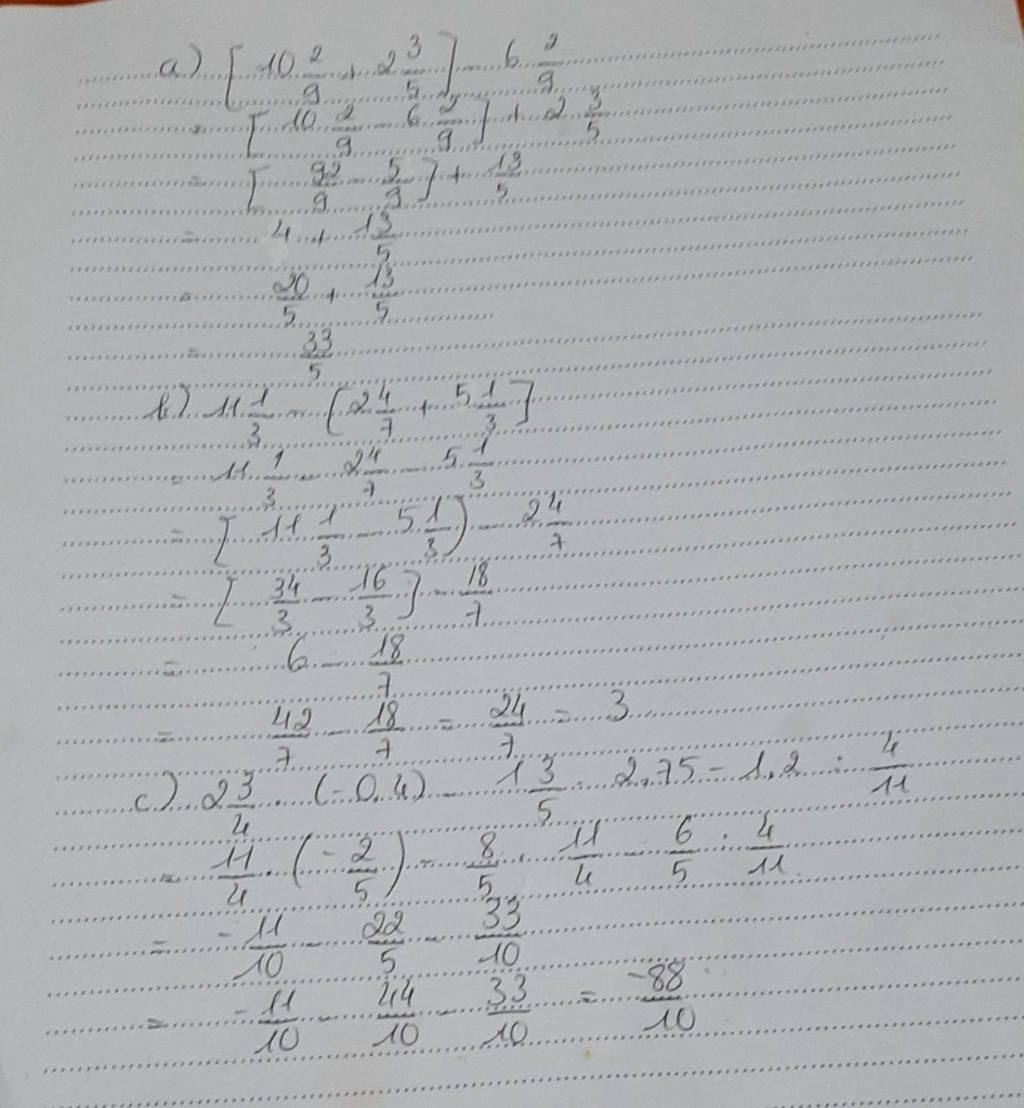 a) [10 2/9 + 2 3/5] - 6 2/9
= [10 2/9 - 6 2/9] + 2 3/5
= [92/9 - 5/9] + 13/5
= 4 + 13/5
= 20/5 + 13/5
= 33/5
b) 11 1/3 - [2 4/7 + 5 1/3]
= 11 1/3 - 2 4/7 - 5 1/3
= [11 1/3 - 5 1/3) - 2 4/7
= [34/3 - 16/3] - 18/7
= 6 - 18/7
= 42/7 - 18/7 = 24/7 = 3
c) 2 3/4 . (-0,4) - 1 3/5 . 2,75 - 1,2 : 4/11
= 11/4 . (-2/5) - 8/5 . 11/4 - 6/5 : 4/11
= -11/10 - 22/5 - 33/10
= -11/10 - 44/10 - 33/10 = -88/10